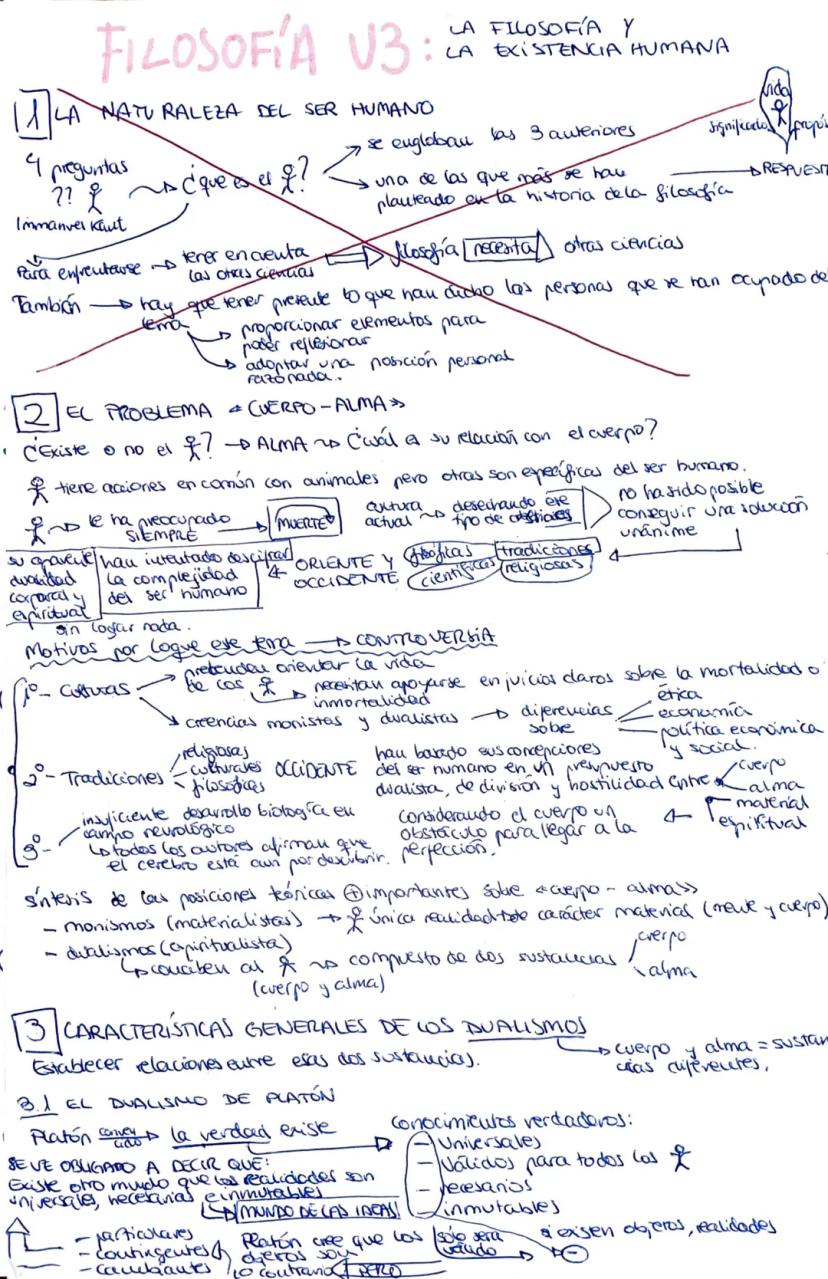 FILOSOFÍA U3: LA FILOSOFÍA Y
LA EXISTENCIA HUMANA
1 LA NATURALEZA DEL SER HUMANO
vida
significado
propós
4 preguntas
??
Immanuel Kant
¿que es el ?
se engloban las 3 anteriores
una de las que más se han
planteado en la historia de la filosofía
RESPUEST
Para enfrentarse → tener en cuenta
las otras ciencias
filosofía necesita otras ciencias
También → hay que tener presente lo que han dicho las personas que se han ocupado del
tema
proporcionar elementos para
poder reflexionar
adoptar una posición personal
razonada.
2 EL PROBLEMA «CUERPO-ALMA»
¿Existe o no el ? → ALMA ¿Cuál es su relación con el cuerpo?
tiene acciones en común con animales pero otras son específicas del ser humano.
le ha preocupado
SIEMPRE → MUERTE
cultura
actual desechando ese
tipo de
no ha sido posible
conseguir una solución
unánime
su aparente
dualidad
corporal y
espiritual
han intentado descifrar
la complejidad
del ser humano
ORIENTE Y
OCCIDENTE
filosóficas
científicas
tradiciones
religiosas
sin lograr nada.
Motivos por los que este tema → CONTROVERSIA
1º- Culturas
pretenden orientar la vida
de los
necesitan apoyarse en juicios claros sobre la mortalidad o
inmortalidad
creencias monistas y dualistas → diferencias
sobre
ética
economía
política económica
y social.
2º- Tradiciones
religiosas
culturales OCCIDENTE
filosóficas
han basado sus concepciones
del ser humano en un presupuesto
dualista, de división y hostilidad entre
cuerpo
alma
material
espiritual
considerando el cuerpo un
obstáculo para llegar a la
perfección.
3º-
insuficiente desarrollo biología en
campo neurológico
todos los autores afirman que
el cerebro está aun por descubrir.
síntesis de las posiciones teóricas ⊕ importantes sobre «cuerpo-alma»
- monismos (materialistas) → única realidad carácter material (mente y cuerpo)
- dualismos (espiritualista)
conciben al compuesto de dos sustancias
cuerpo
alma
(cuerpo y alma)
3 CARACTERÍSTICAS GENERALES DE LOS DUALISMOS
cuerpo y alma = sustan
cias diferentes.
Establecer relaciones entre esas dos sustancias.
3.1 EL DUALISMO DE PLATÓN
Platón conven
cido la verdad existe
conocimientos verdaderos:
- Universales
- Válidos para todos los
- necesarios
- inmutables
SE VE OBLIGADO A DECIR QUE:
Existe otro mundo que las realidades son
universales, necesarias e inmutables
MUNDO DE LAS IDEAS
- particulares
- contingentes
- cambiantes
Platón cree que los
objetos son
lo contrario
PERO
sólo será
válido
si existen objetos, realidades